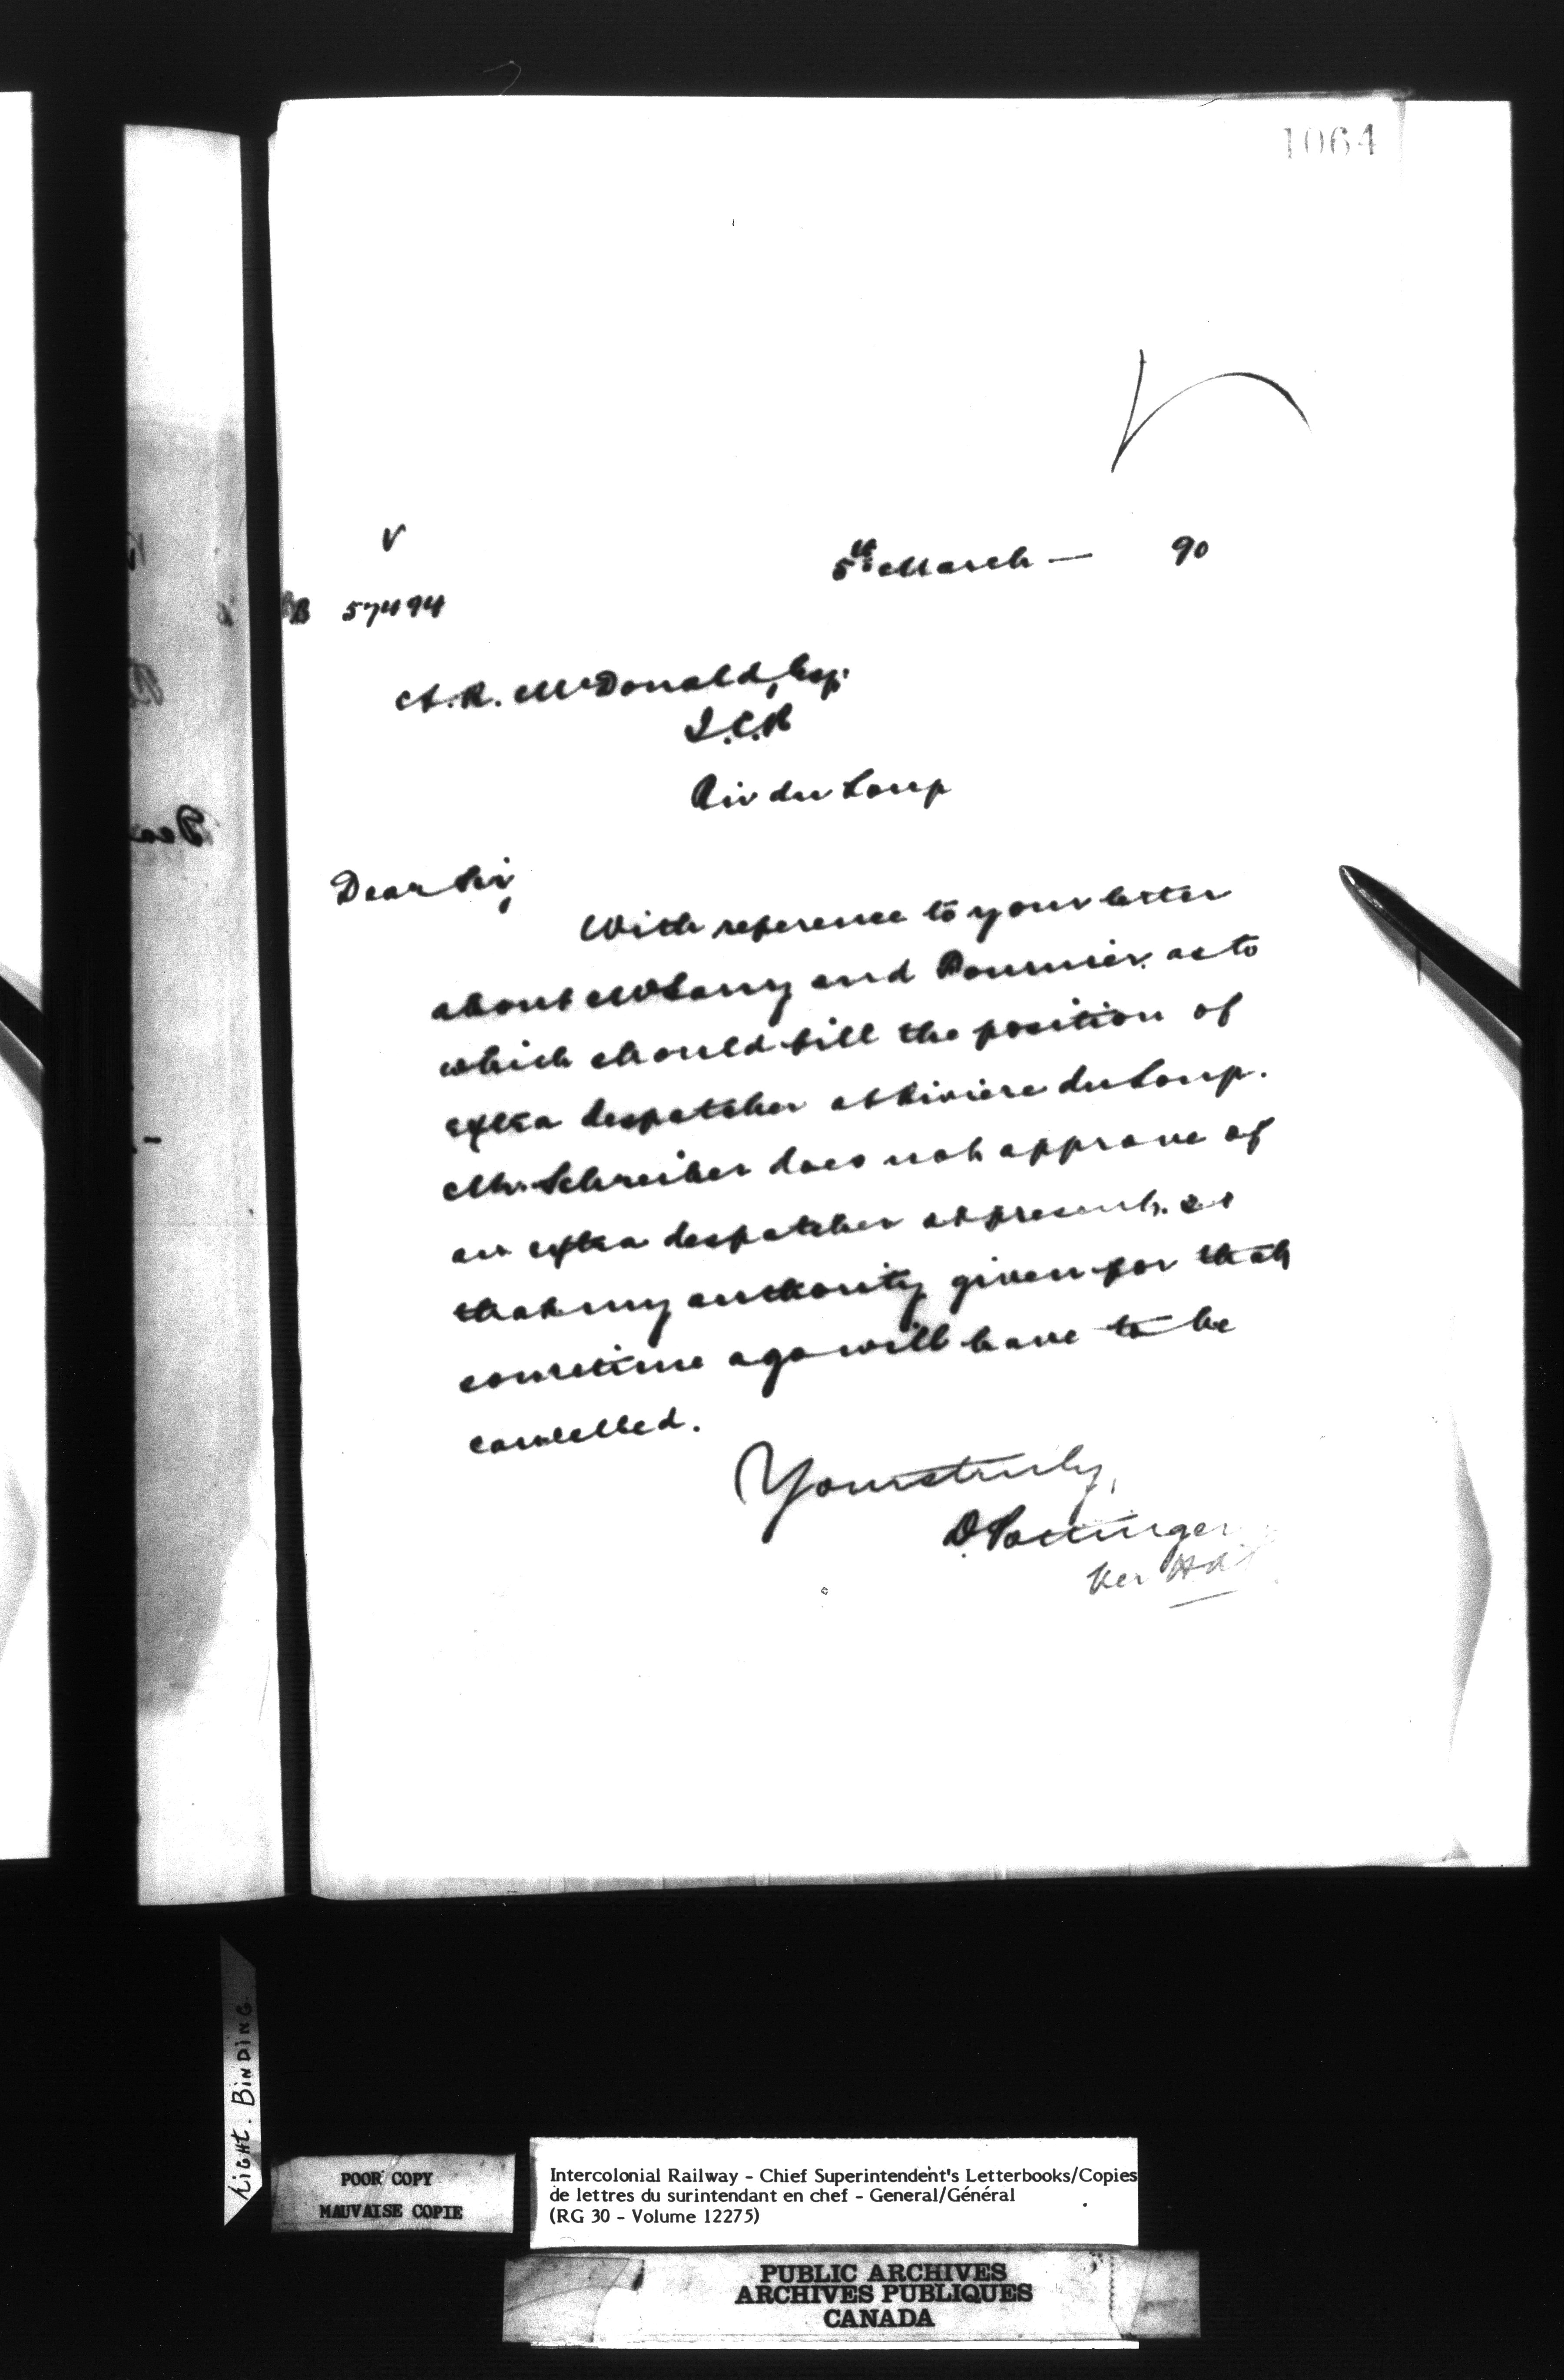 1064
V
5th March — 90
B 57494
A. R. McDonald, Esq.
I.C.R
Riv du Loup
Dear Sir,
With reference to your letter
about and as to
which should fill the position of
extra despatcher at Riviere du Loup.
Mr. Schreiber does not approve of
an extra despatcher at present, so
that my authority given for that
sometime ago will have to be
cancelled.
Yours truly,
D. Pottinger
Per
LIGHT. BINDING.
POOR COPY
MAUVAISE COPIE
Intercolonial Railway - Chief Superintendent's Letterbooks/Copies
de lettres du surintendant en chef - General/Général
(RG 30 - Volume 12275)
PUBLIC ARCHIVES
ARCHIVES PUBLIQUES
CANADA